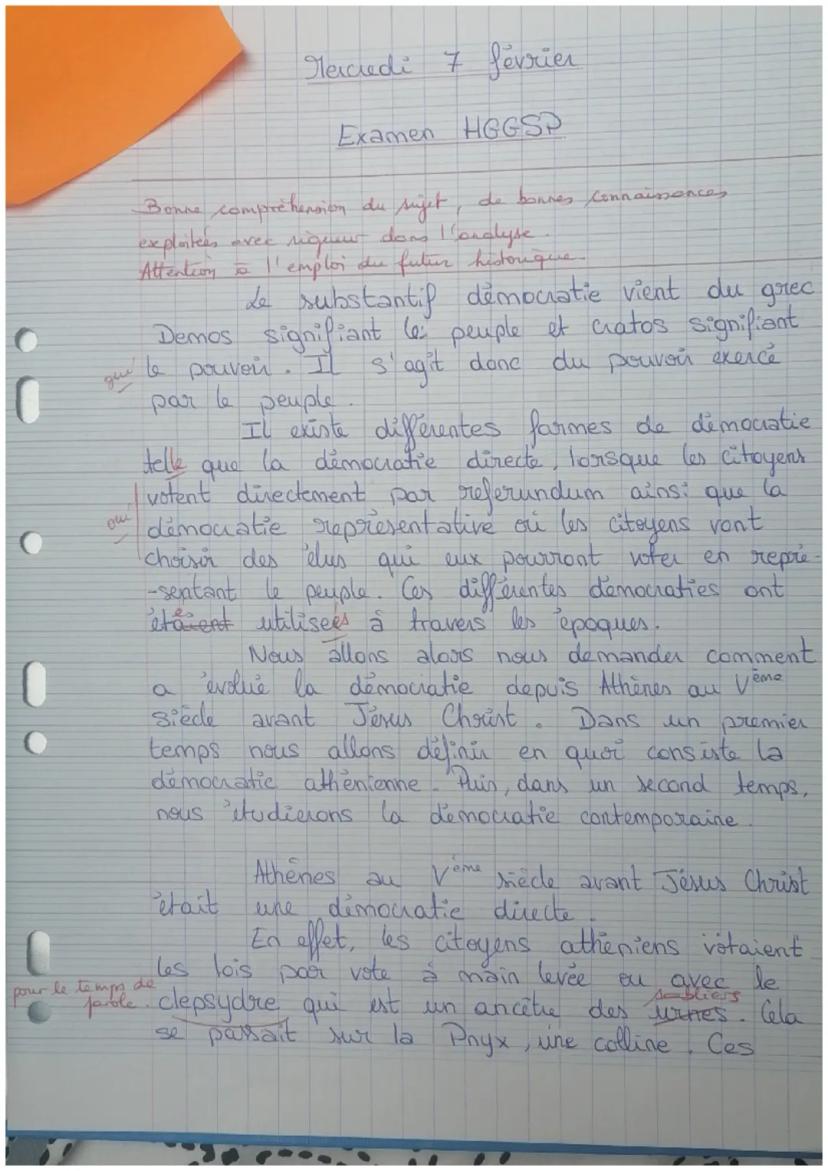 Mercredi 7 février
Examen HGGSP
Bonne compréhension du sujet, de bonnes connaissances
exploitées avec rigueur dans l'analyse.
Attention à l'emploi du futur historique.
Le substantif démocratie vient du grec
Demos signifiant le peuple et cratos signifiant
oui le pouvoir. Il s'agit donc du pouvoir exercé
par le peuple.
Il existe différentes formes de démocratie
telle que la démocratie directe, lorsque les citoyens
votent directement par referundum ainsi que la
oui démocratie représentative où les citoyens vont
choisir des élus qui eux pourront voter en repré-
-sentant le peuple. Ces différentes démocraties ont
étaient és utilisées à travers les époques.
Nous allons alors nous demander comment
a évolué la démocratie depuis Athènes au Vème
siècle avant Jésus Christ. Dans un premier
temps nous allons définir en quoi consiste la
démocratie athénienne. Puis, dans un second temps,
nous étudierons la démocratie contemporaine.
Athènes au Vème siècle avant Jésus Christ
était une démocratie directe.
En effet, les citoyens athéniens votaient
les lois par vote à main levée ou avec le
pour le temps de parole. clepsydre qui est un ancêtre des urnes sabliers. Cela
se passait sur la Pnyx, une colline. Ces